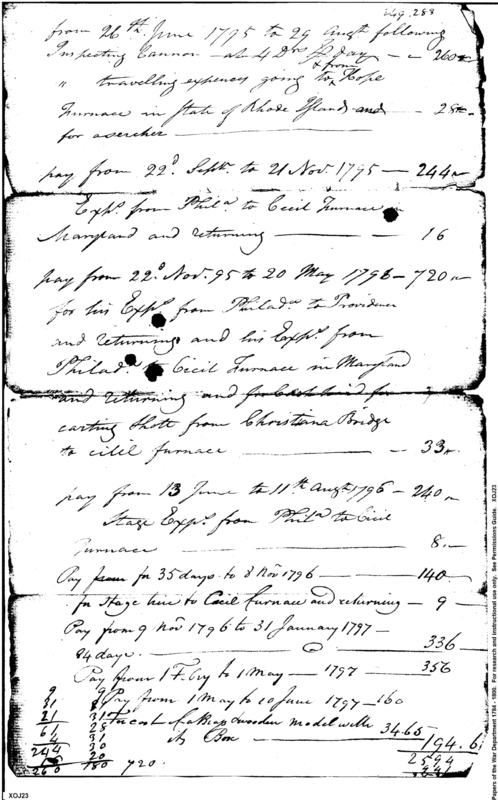 from 26th June 1795 to 29 Augt following
Inspecting Cannon at 4 Drs ⅌ day — 260
" travelling expences going to & from Hope
Furnace in State of Rhode Island and — 28
for a sercher
pay from 22d Septr. to 21 Nov. 1795 — 244
Exps. from Phila to Cecil Furnace in
Maryland and returning — 16
pay from 22d Nov. 95 to 20 May 1796 — 720
for his Exps. from Philada to Providence
and returning and his Exps. from
Philada to Cecil Furnace in Maryland
and returning and for Cash paid for
carting Shott from Christiana Bridge
to cicil furnace — 33
pay from 13 June to 11th Augt 1796 — 240
Stage Exps. from Phila to Cicil
Furnace — 8
Pay for 35 days to 8 Novr 1796 — 140
for Stage hire to Cecil furnace and returning — 9
Pay from 9 Novr 1796 to 31 January 1797 —
84 days — 336
Pay from 1 Feby to 1 May — 1797 — 356
Pay from 1 May to 10 June 1797 — 160
To cost of a wooden model with
its Box — 34.65
194.6
9
31
21
61
4
244
16
260
9
31
28
31
30
20
180 720
2594
XOJ23
Papers of the War Department 1784 - 1800. For research and instructional use only. See Permissions Guide. XOJ23